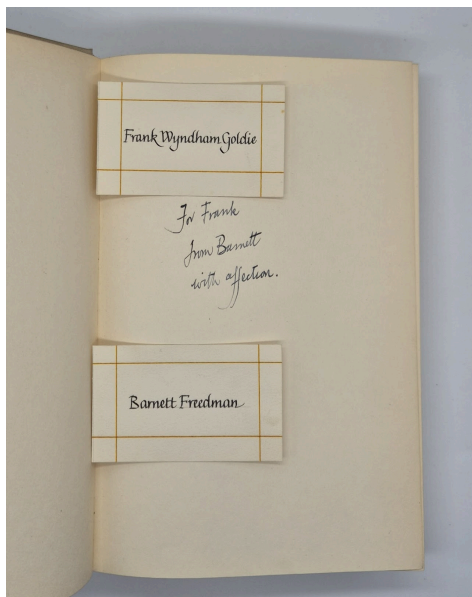 Frank Wyndham Goldie
For Frank
from Barnett
with affection.
Barnett Freedman